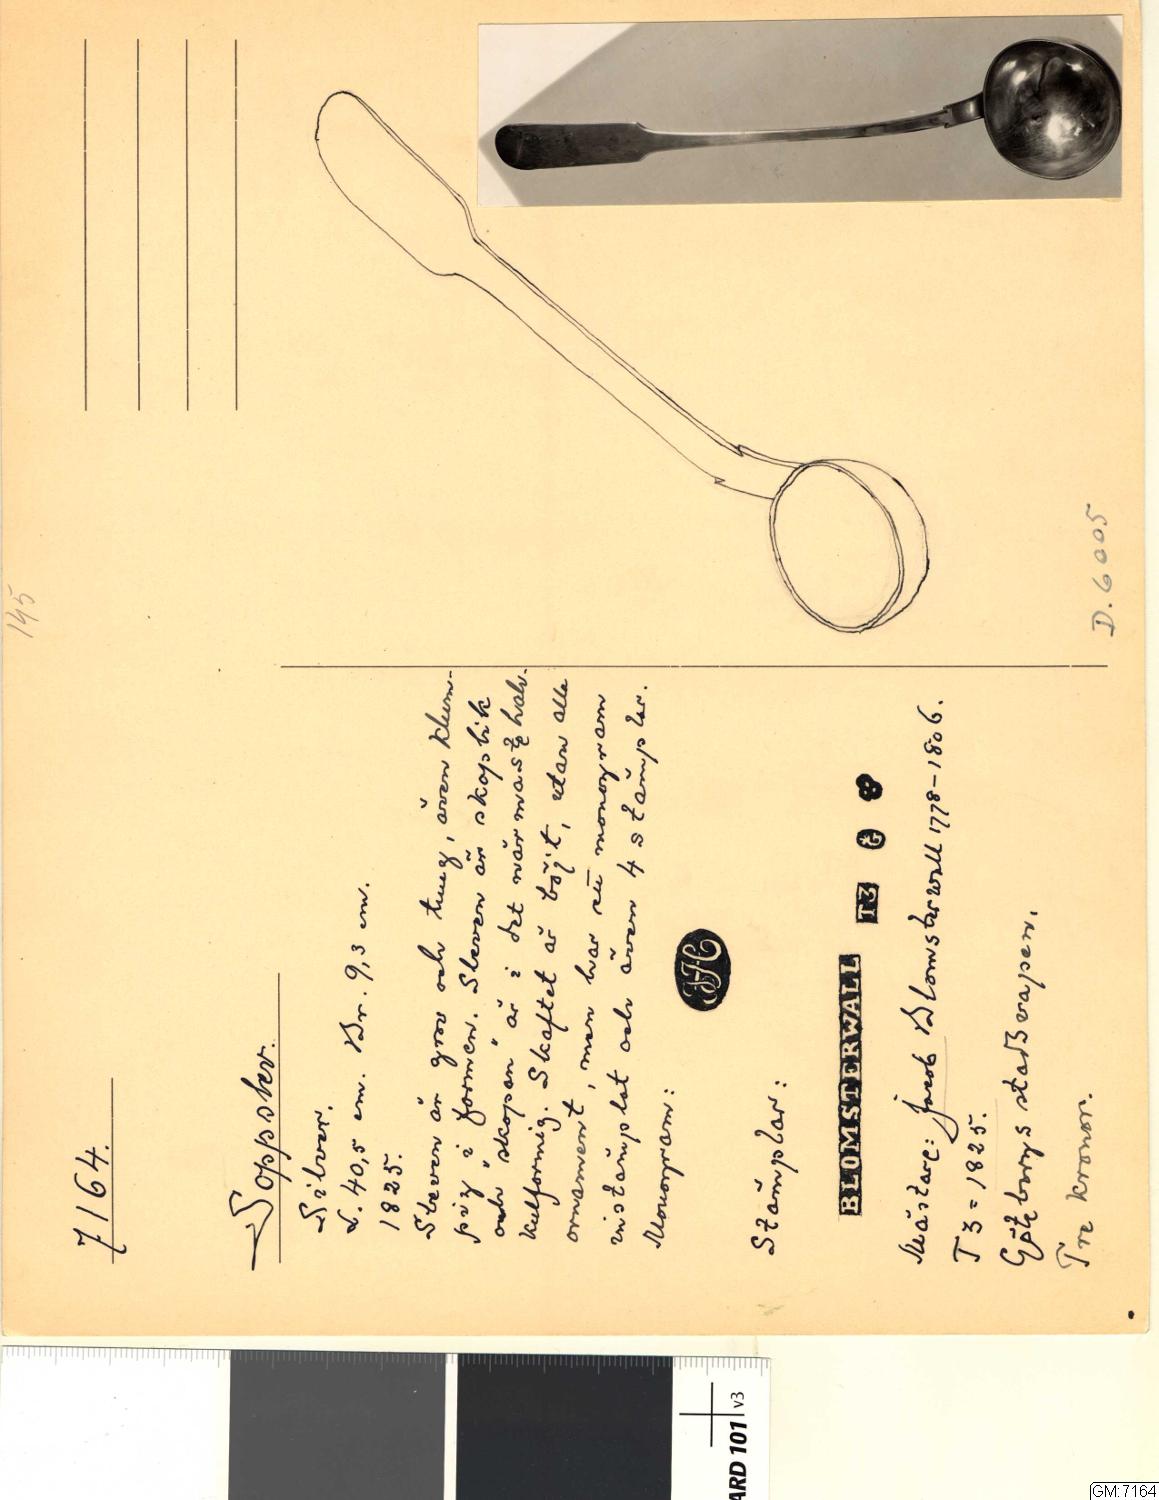 145
7164.
Soppslev.
Silver.
L. 40,5 cm. Br. 9,3 cm.
1825.
Sleven är grov och tung, även klum-
pig i formen. Sleven är skoplik
och "skopan" är i det närmaste halv-
kulformig. Skaftet är böjt, utan alla
ornament, men har ett monogram
instämplat och även 4 stämplar.
Monogram:
JH
Stämplar:
BLOMSTERWALL T3 G
Mästare: Jacob Blomsterwall 1778-1806.
T3 = 1825.
Göteborgs stadsvapen.
Tre kronor.
D. 6005
ARD 101 v3
GM:7164